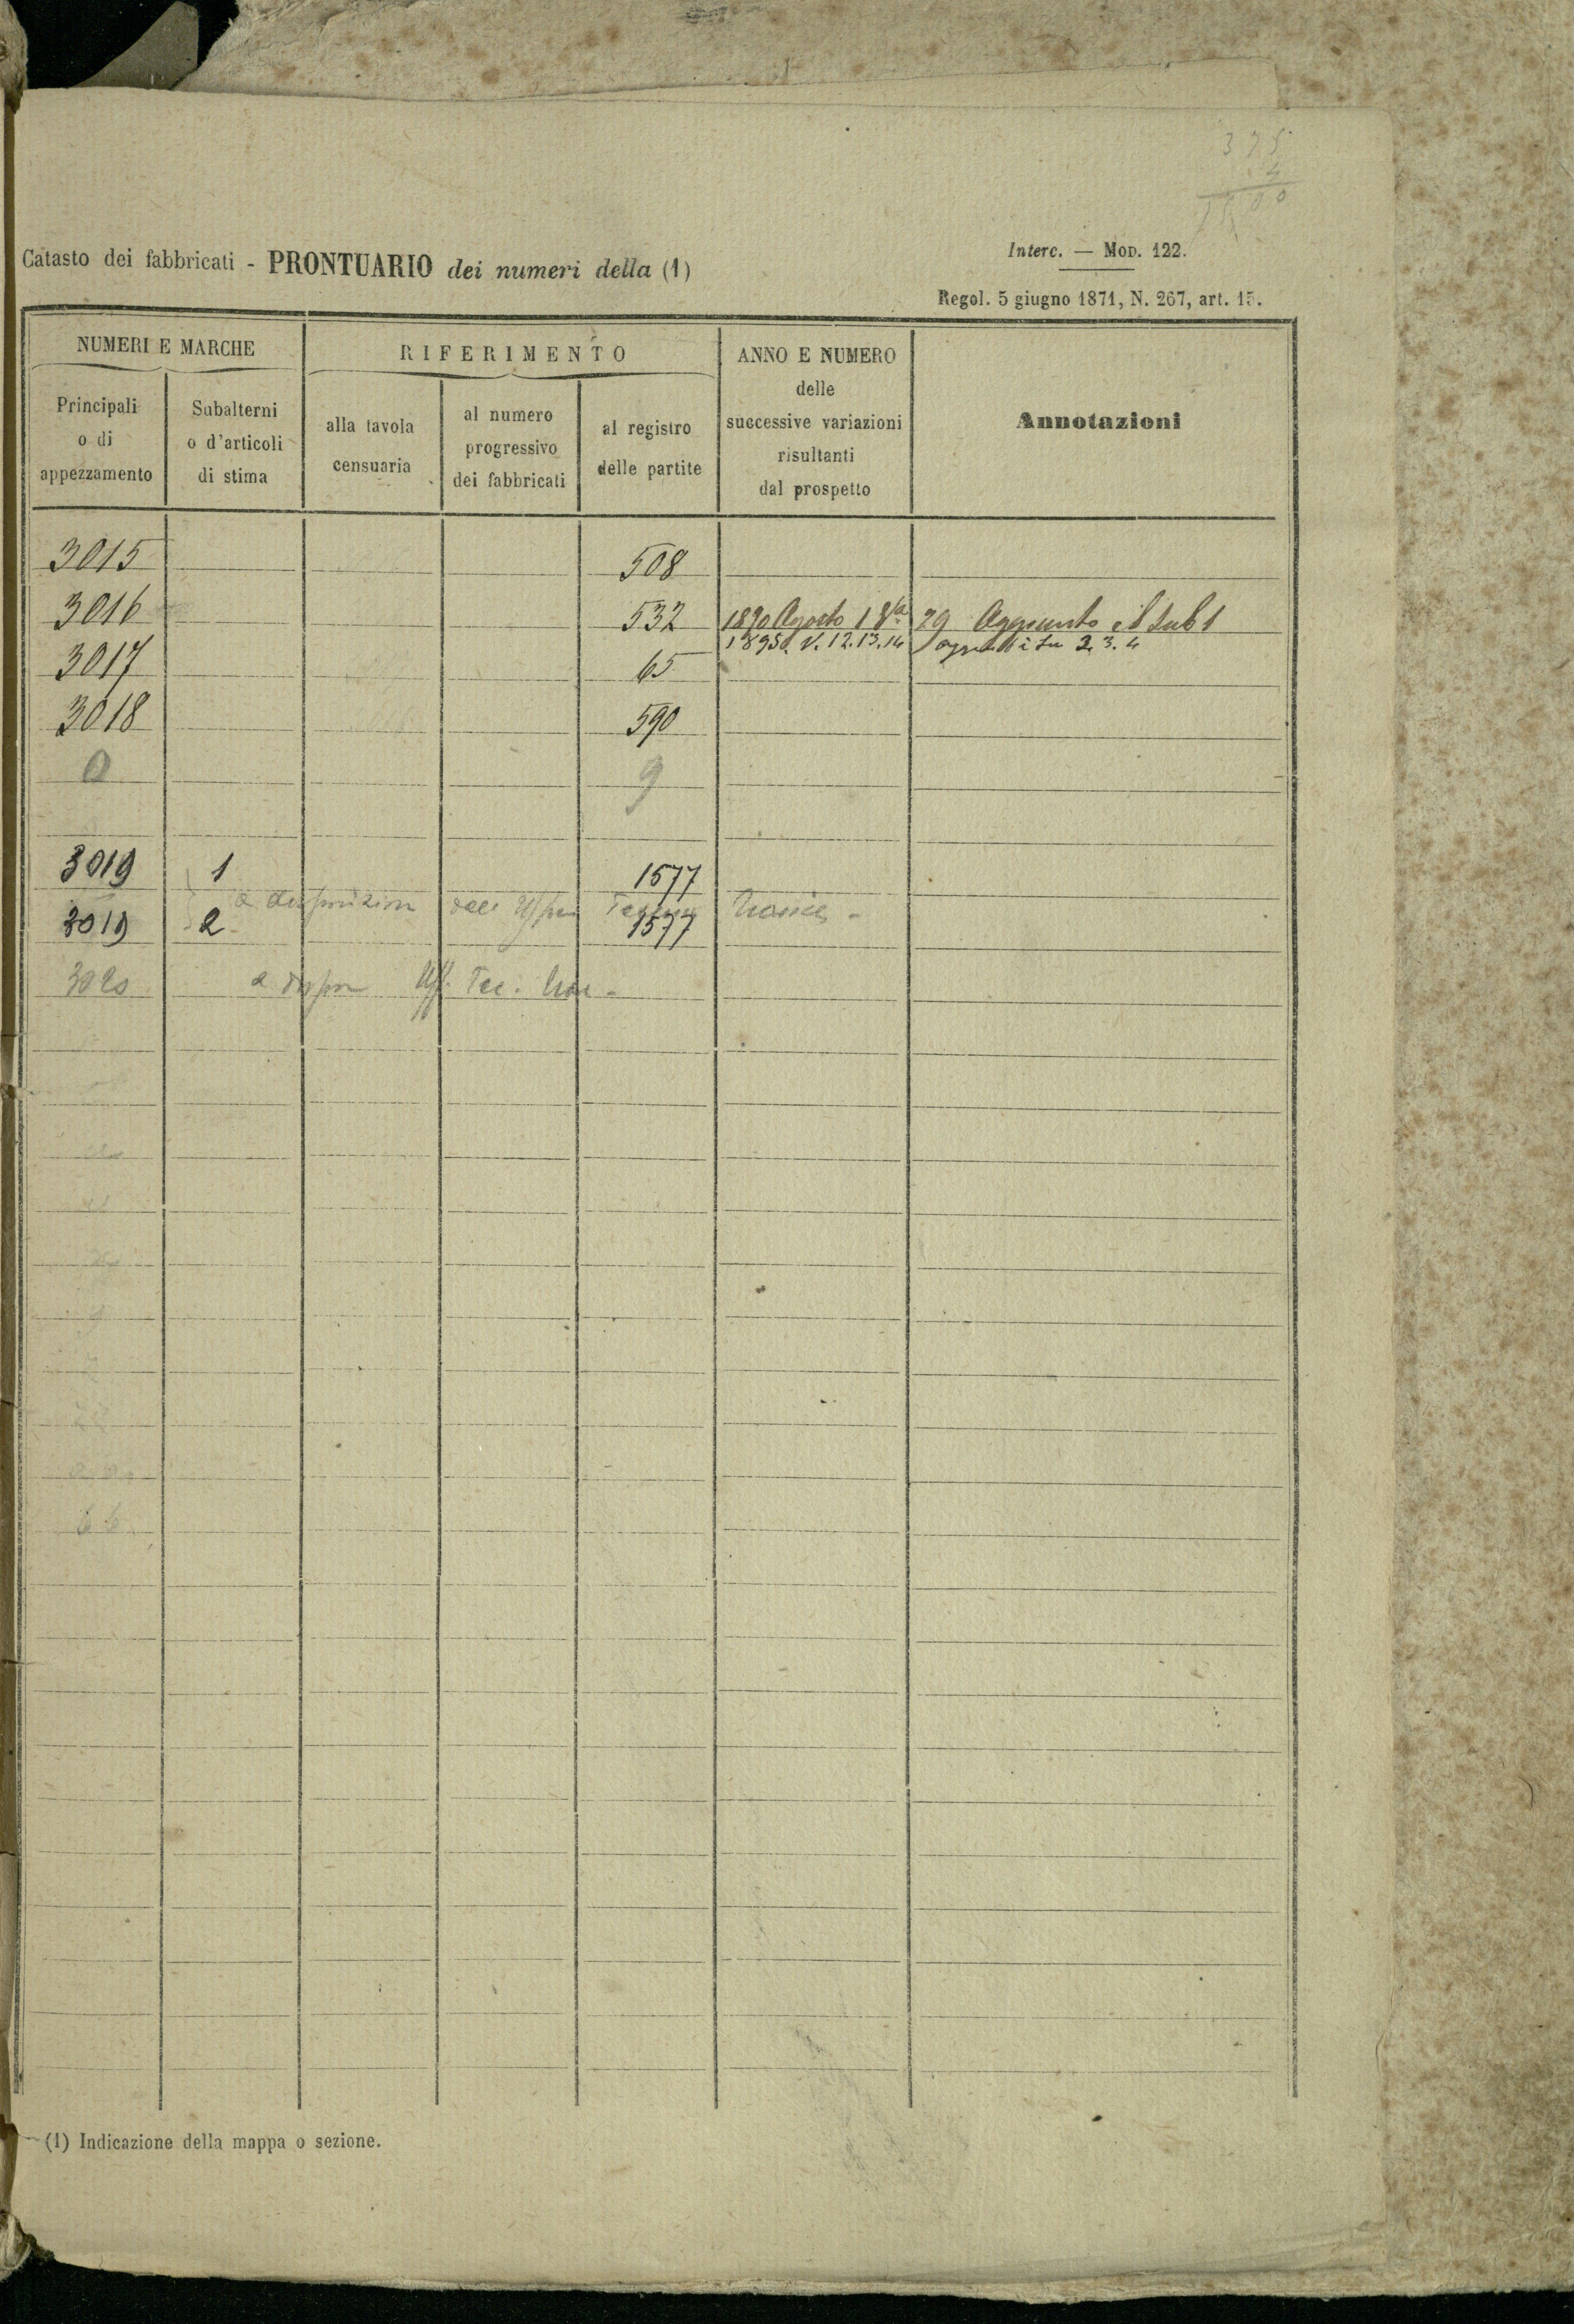 375
4
1500
Catasto dei fabbricati - PRONTUARIO dei numeri della (1)
Interc. — Mod. 122.
Regol. 5 giugno 1871, N. 267, art. 15.
NUMERI E MARCHE
RIFERIMENTO
ANNO E NUMERO
delle
successive variazioni
risultanti
dal prospetto
Annotazioni
Principali
o di
appezzamento
Subalterni
o d'articoli
di stima
alla tavola
censuaria
al numero
progressivo
dei fabbricati
al registro
delle partite
3015 508
3016 532 1890 Agosto 1 29 Aggiunto il sub 1
1895 V. 12.13.14 2. 3. 4
3017 65
3018 590
0 9
3019 1 1577
a disposizion dell Tecnico
3019 2 1577
3020 a dispon Uff. Tec.
(1) Indicazione della mappa o sezione.